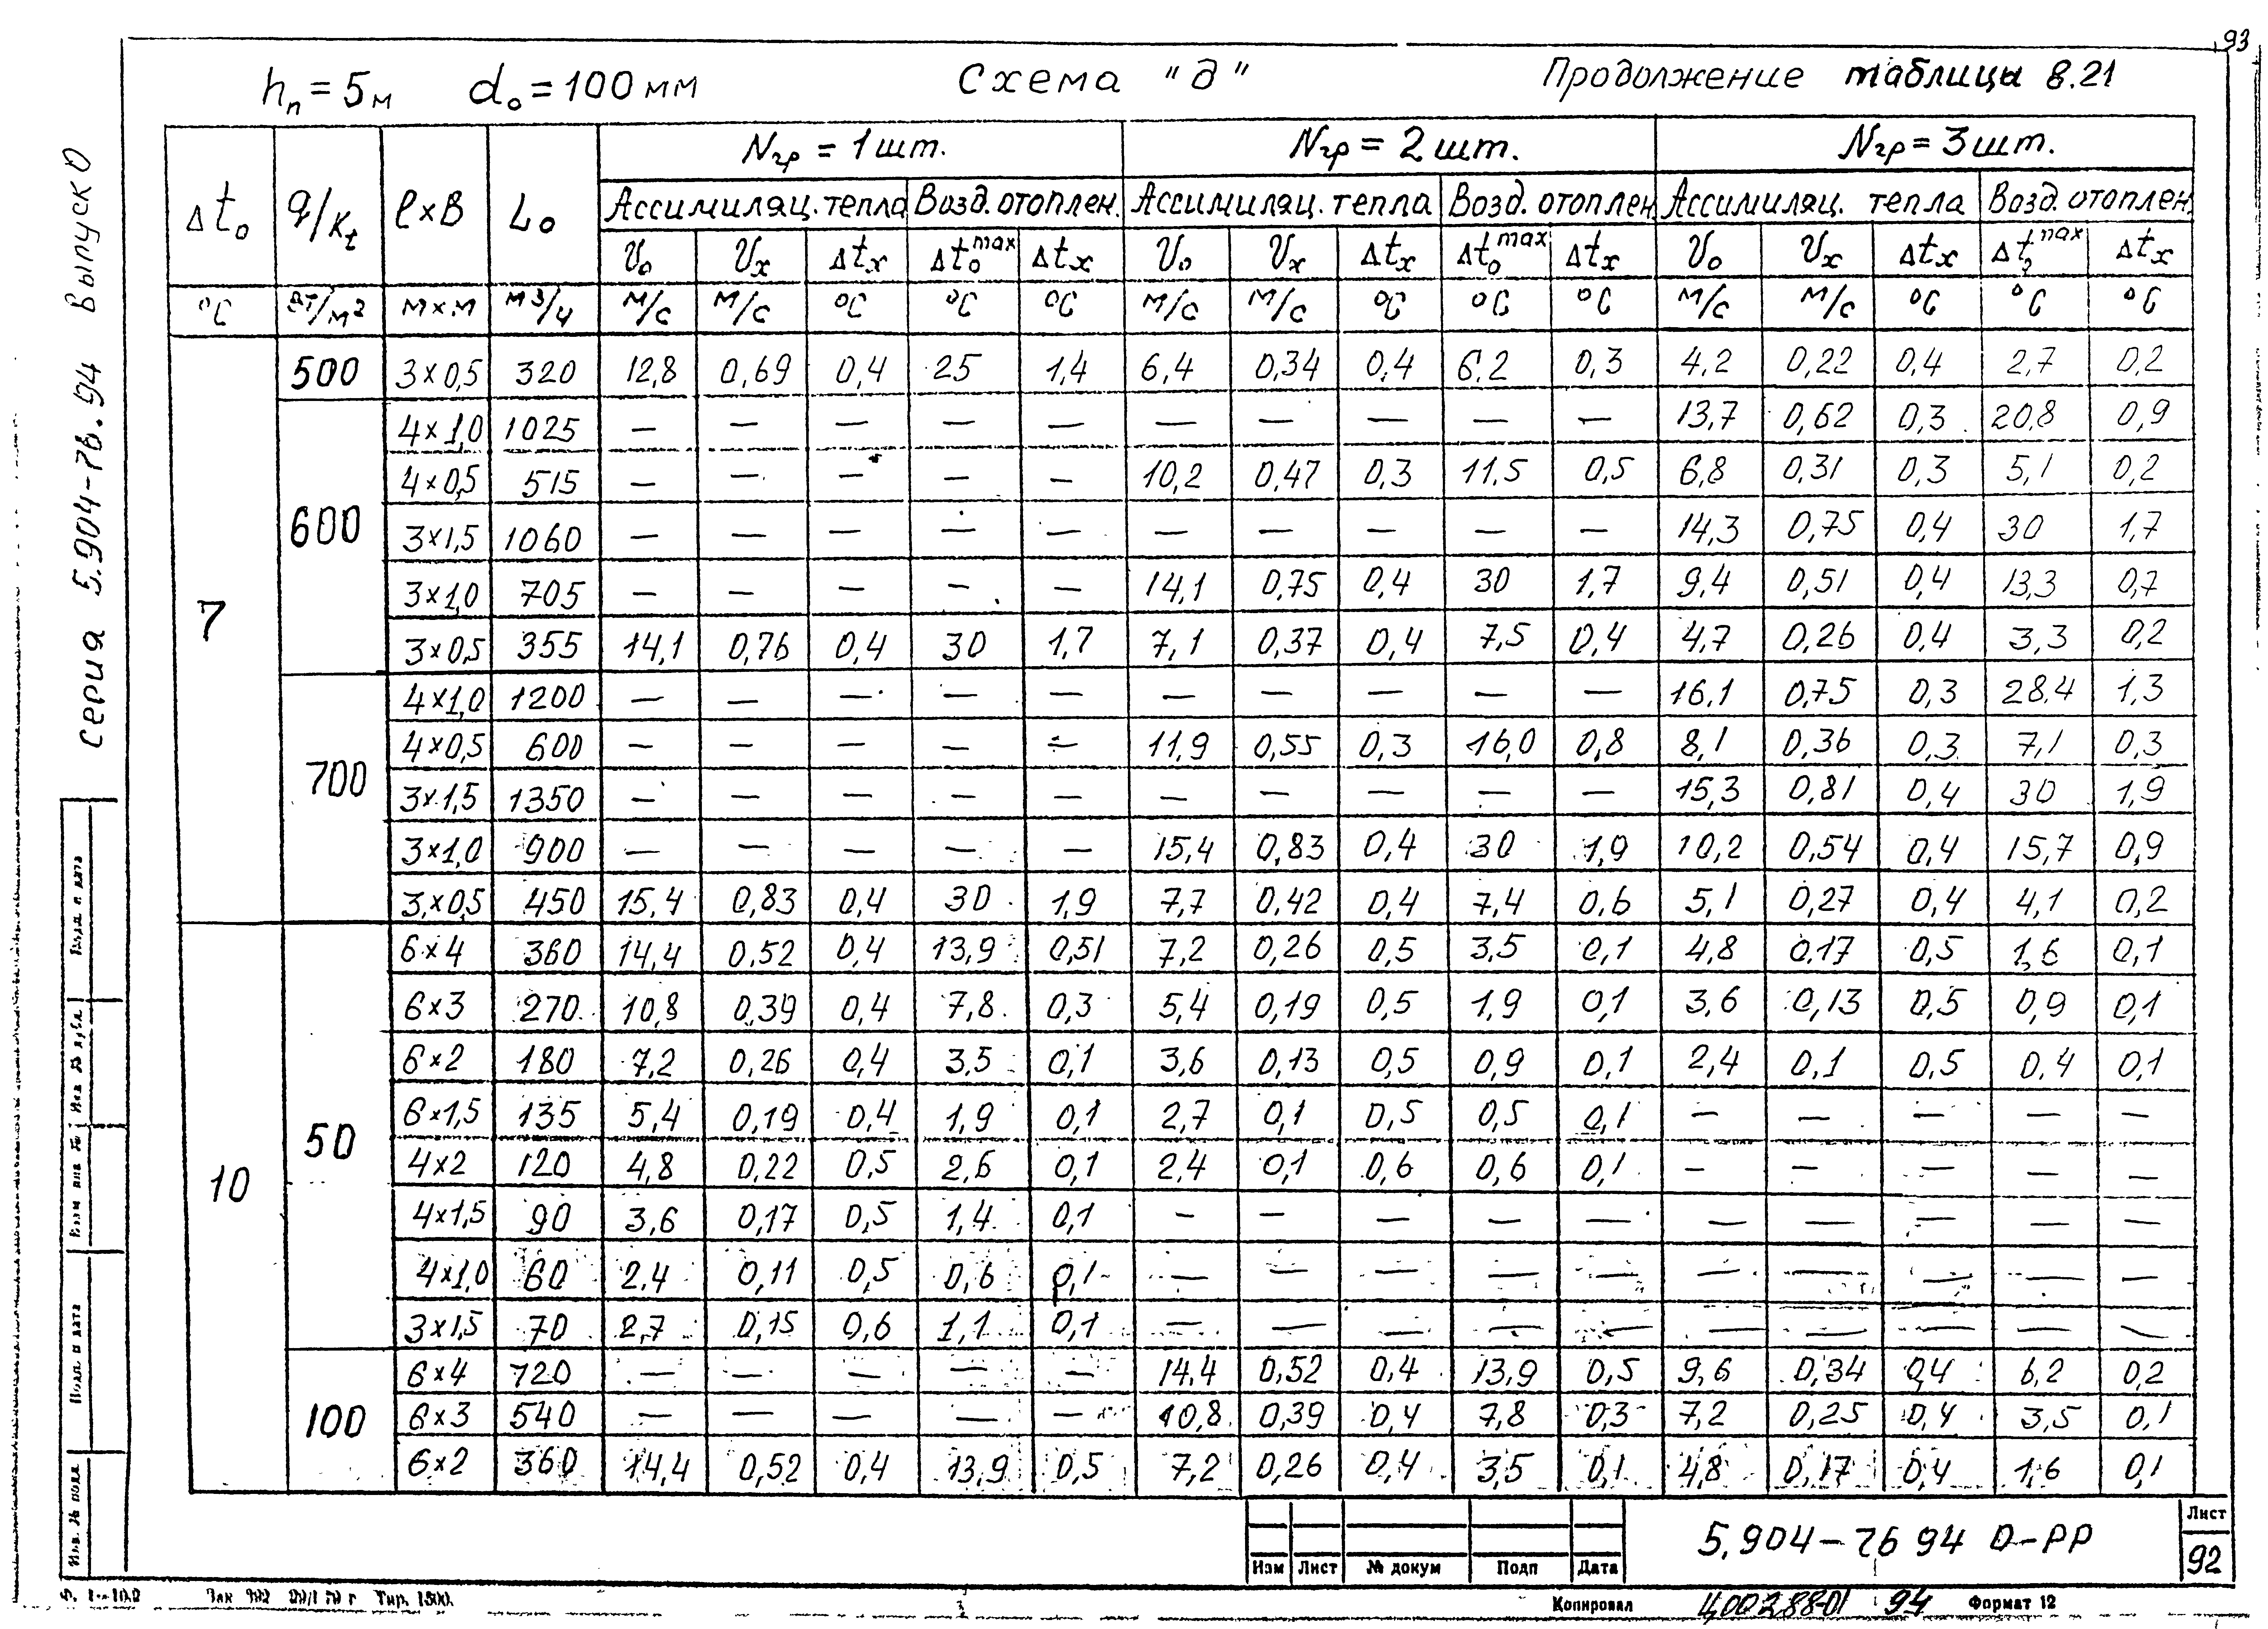 93
hп = 5м dо = 100 мм Схема "д" Продолжение таблицы 8.21
Серия 5.904-76.94 Выпуск 0
Δtо q/Kt l×B Lо Nгр = 1 шт. Nгр = 2 шт. Nгр = 3 шт.
Ассимиляц. тепла Возд. отоплен. Ассимиляц. тепла Возд. отоплен. Ассимиляц. тепла Возд. отоплен.
Vо Vx Δtx Δtо max Δtx Vо Vx Δtx Δtо max Δtx Vо Vx Δtx Δtо max Δtx
°C Вт/м² м×м м³/ч м/с м/с °C °C °C м/с м/с °C °C °C м/с м/с °C °C °C
7 500 3×0,5 320 12,8 0,69 0,4 25 1,4 6,4 0,34 0,4 6,2 0,3 4,2 0,22 0,4 2,7 0,2
600 4×1,0 1025 — — — — — — — — — — 13,7 0,62 0,3 20,8 0,9
4×0,5 515 — — — — — 10,2 0,47 0,3 11,5 0,5 6,8 0,31 0,3 5,1 0,2
3×1,5 1060 — — — — — — — — — — 14,3 0,75 0,4 30 1,7
3×1,0 705 — — — — — 14,1 0,75 0,4 30 1,7 9,4 0,51 0,4 13,3 0,7
3×0,5 355 14,1 0,76 0,4 30 1,7 7,1 0,37 0,4 7,5 0,4 4,7 0,26 0,4 3,3 0,2
700 4×1,0 1200 — — — — — — — — — — 16,1 0,75 0,3 28,4 1,3
4×0,5 600 — — — — — 11,9 0,55 0,3 16,0 0,8 8,1 0,36 0,3 7,1 0,3
3×1,5 1350 — — — — — — — — — — 15,3 0,81 0,4 30 1,9
3×1,0 900 — — — — — 15,4 0,83 0,4 30 1,9 10,2 0,54 0,4 15,7 0,9
3×0,5 450 15,4 0,83 0,4 30 1,9 7,7 0,42 0,4 7,4 0,6 5,1 0,27 0,4 4,1 0,2
10 50 6×4 360 14,4 0,52 0,4 13,9 0,51 7,2 0,26 0,5 3,5 0,1 4,8 0,17 0,5 1,6 0,1
6×3 270 10,8 0,39 0,4 7,8 0,3 5,4 0,19 0,5 1,9 0,1 3,6 0,13 0,5 0,9 0,1
6×2 180 7,2 0,26 0,4 3,5 0,1 3,6 0,13 0,5 0,9 0,1 2,4 0,1 0,5 0,4 0,1
6×1,5 135 5,4 0,19 0,4 1,9 0,1 2,7 0,1 0,5 0,5 0,1 — — — — —
4×2 120 4,8 0,22 0,5 2,6 0,1 2,4 0,1 0,6 0,6 0,1 — — — — —
4×1,5 90 3,6 0,17 0,5 1,4 0,1 — — — — — — — — — —
4×1,0 60 2,4 0,11 0,5 0,6 0,1 — — — — — — — — — —
3×1,5 70 2,7 0,15 0,6 1,1 0,1 — — — — — — — — — —
100 6×4 720 — — — — — 14,4 0,52 0,4 13,9 0,5 9,6 0,34 0,4 6,2 0,2
6×3 540 — — — — — 10,8 0,39 0,4 7,8 0,3 7,2 0,25 0,4 3,5 0,1
6×2 360 14,4 0,52 0,4 13,9 0,5 7,2 0,26 0,4 3,5 0,1 4,8 0,17 0,4 1,6 0,1
Изм Лист № докум Подп Дата
5.904-76 94 0-РР
Лист
92
Подп. и дата
Инв. № дубл
Взам. инв. №
Подп. и дата
Инв. № подл
Тир. 1500.
Копировал Ц00288-01 94 Формат 12